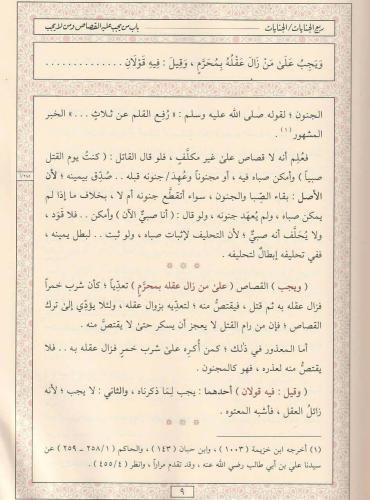 ربع الجنايات / الجنايات
باب من يجب عليه القصاص ومن لا يجب
وَيَجِبُ عَلَىٰ مَنْ زَالَ عَقْلُهُ بِمُحَرَّمٍ ، وَقِيلَ : فِيهِ قَوْلَانِ . . . . . . . . . . . . . .
الجنون ؛ لقوله صلى الله عليه وسلم : « رُفِع القلم عن ثلاثٍ . . . » الخبر
المشهور (١) .
فعُلِم أنه لا قصاص علىٰ غير مكلَّفٍ ، فلو قال القاتل : ( كنتُ يوم القتل
صبياً ) وأمكن صباه فيه ، أو مجنوناً وعُهِدَ جنونه قبله . . صُدِّق بيمينه ؛ لأن
١/٢٥٨
الأصل : بقاء الصِّبا والجنون ، سواء أتقطَّع جنونه أم لا ، بخلاف ما إذا لم
يمكن صباه ، ولم يُعهَد جنونه ، ولو قال : ( أنا صبيٌّ الآن ) وأمكن . . فلا قَوَد ،
ولا يُحَلَّف أنه صبيٌّ ؛ لأن التحليف لإثبات صباه ، ولو ثبت . . لبطل يمينه ،
ففي تحليفه إبطالٌ لتحليفه .
* * *
( ويجب ) القصاص ( علىٰ من زال عقله بمحرَّم ) تعدِّياً ؛ كأن شرب خمراً
فزال عقله به ثم قتل ، فيقتصُّ منه ؛ لتعدِّيه بزوال عقله ، ولئلا يؤدِّي إلىٰ ترك
القصاص ؛ فإن من رام القتل لا يعجز أن يسكر حتىٰ لا يقتصَّ منه .
أما المعذور في ذلك ؛ كمن أُكرِه علىٰ شرب خمرٍ فزال عقله به . . فلا
يقتصُّ منه لعذره ، فهو كالمجنون .
( وقيل : فيه قولان ) أحدهما : يجب لِمَا ذكرناه ، والثاني : لا يجب ؛ لأنه
زائلُ العقل ، فأشبه المعتوه .
* * *
(١) أخرجه ابن خزيمة ( ١٠٠٣ ) ، وابن حبان ( ١٤٣ ) ، والحاكم ( ٢٥٨/١ - ٢٥٩ ) عن
سيدنا علي بن أبي طالب رضي الله عنه ، وقد تقدم مراراً ، وانظر ( ٤٥٥/٤ ) .
٩